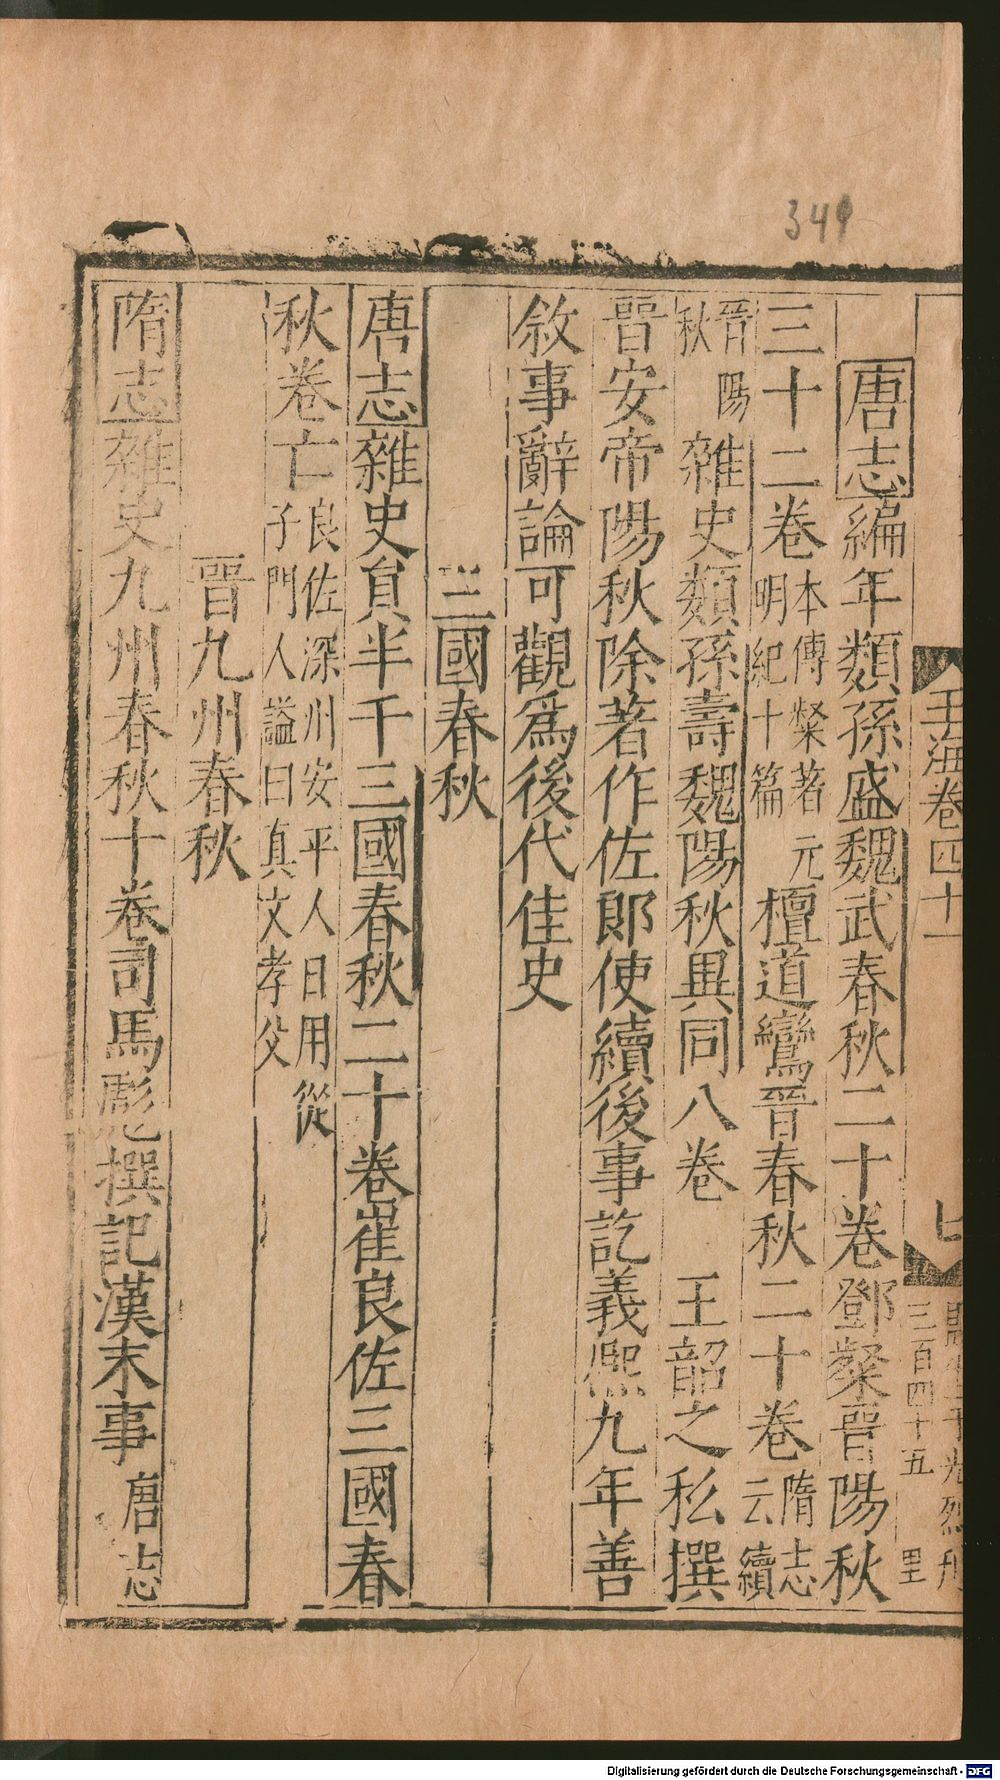 349
玉海卷四十一
三百四十五
里
唐志編年類孫盛魏武春秋二十卷鄧粲晉陽秋
三十二卷本傳粲著元明紀十篇檀道鸞晉春秋二十卷隋志云續
晉陽秋雜史類孫壽魏陽秋異同八卷 王韶之私撰
晉安帝陽秋除著作佐郎使續後事訖義熙九年善
敘事辭論可觀爲後代佳史
三國春秋
唐志雜史負半千三國春秋二十卷崔良佐三國春
秋卷亡良佐深州安平人日用從子門人謚曰真文孝父
晉九州春秋
隋志雜史九州春秋十卷司馬彪撰記漢末事唐志
Digitalisierung gefördert durch die Deutsche Forschungsgemeinschaft - DFG